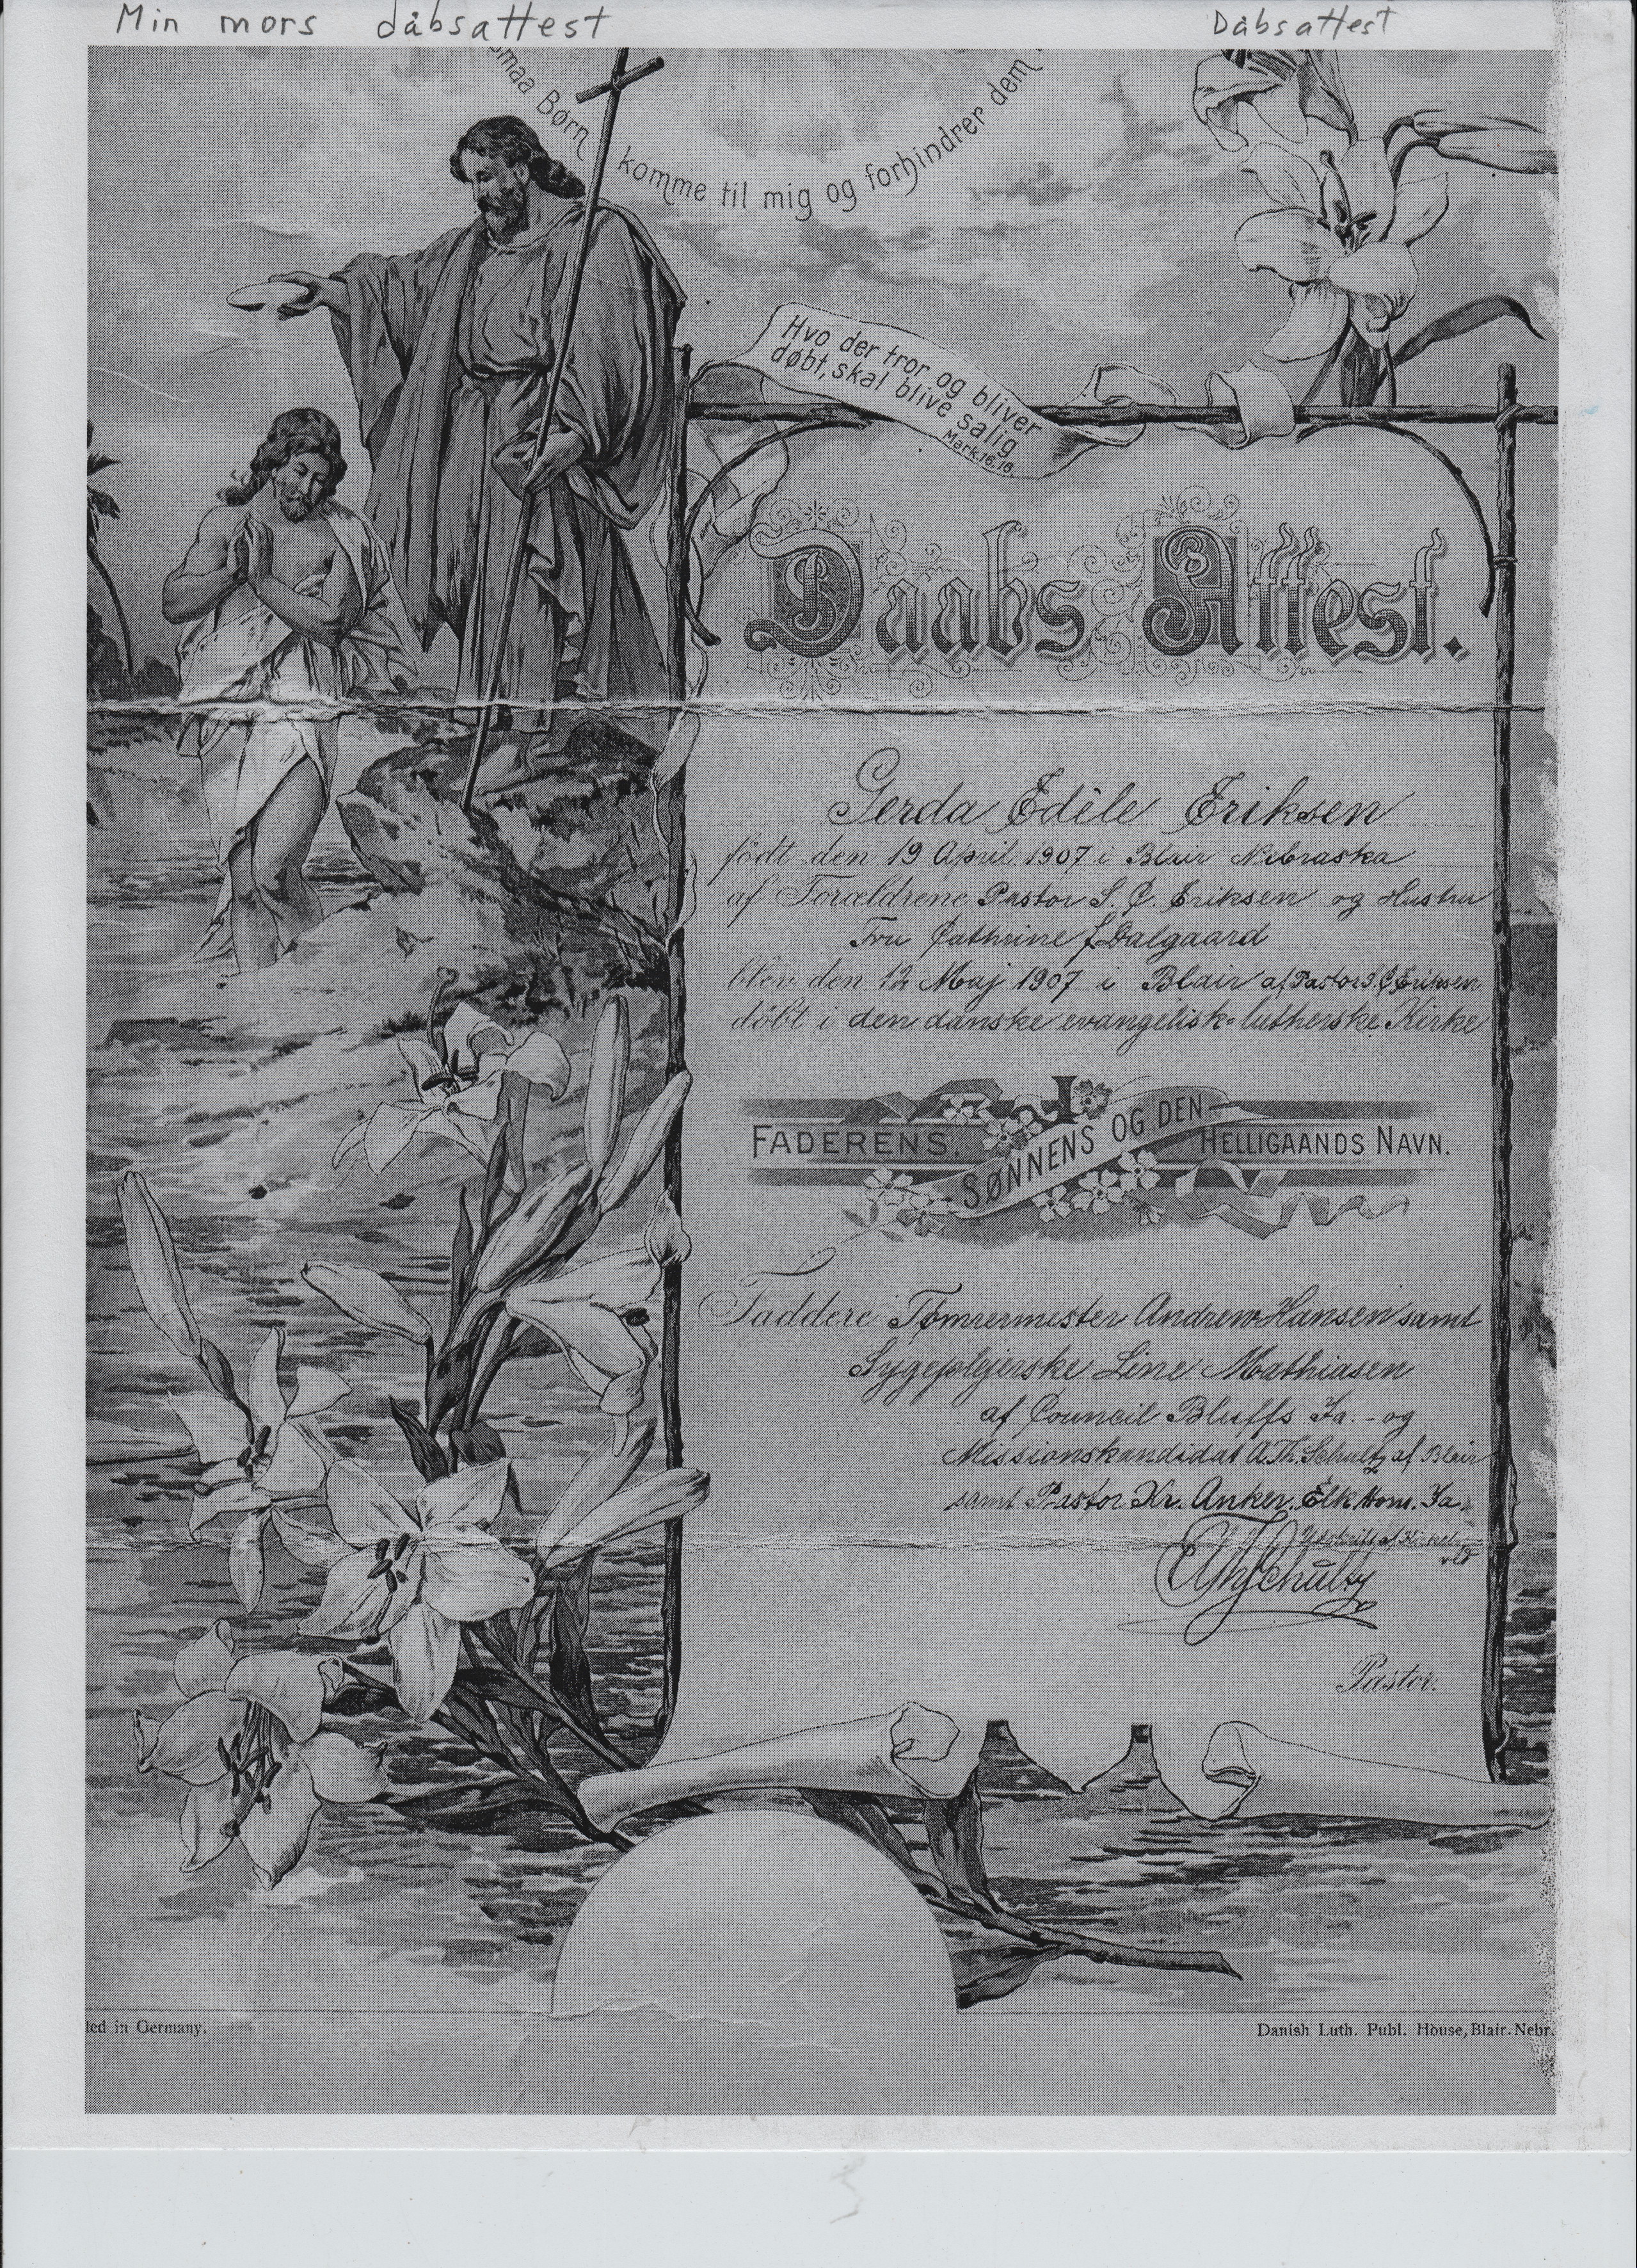 Min mors dåbsattest
Dåbsattest
smaa Børn komme til mig og forhindrer dem
Hvo der tror og bliver
døbt, skal blive salig
Mark. 16, 16.
Daabs Attest.
Gerda Edèle Eriksen
födt den 19 April 1907 i Blair Nebraska
af Forældrene Pastor S. C. Eriksen og Hustru
Fru Cathrine f. Dalgaard
blev den 12 Maj 1907 i Blair af Pastor S. C. Eriksen
döbt i den danske evangelisk-lutherske Kirke
I
FADERENS, SØNNENS OG DEN HELLIGAANDS NAVN.
Faddere Tømrermester Andrew Hansen samt
Sygeplejerske Line Mathiasen
af Council Bluffs Ia. - og
Missionskandidat A. Th. Schultz af Blair
samt Pastor Kr. Anker. Elk Horn. Ia.
A Th Schultz
Pastor.
ted in Germany.
Danish Luth. Publ. House, Blair. Nebr.